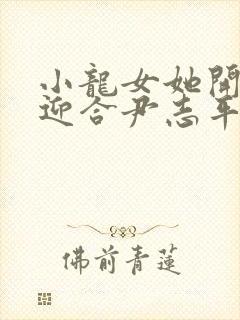 小龍女她開
迎合尹志平
佛前青蓮